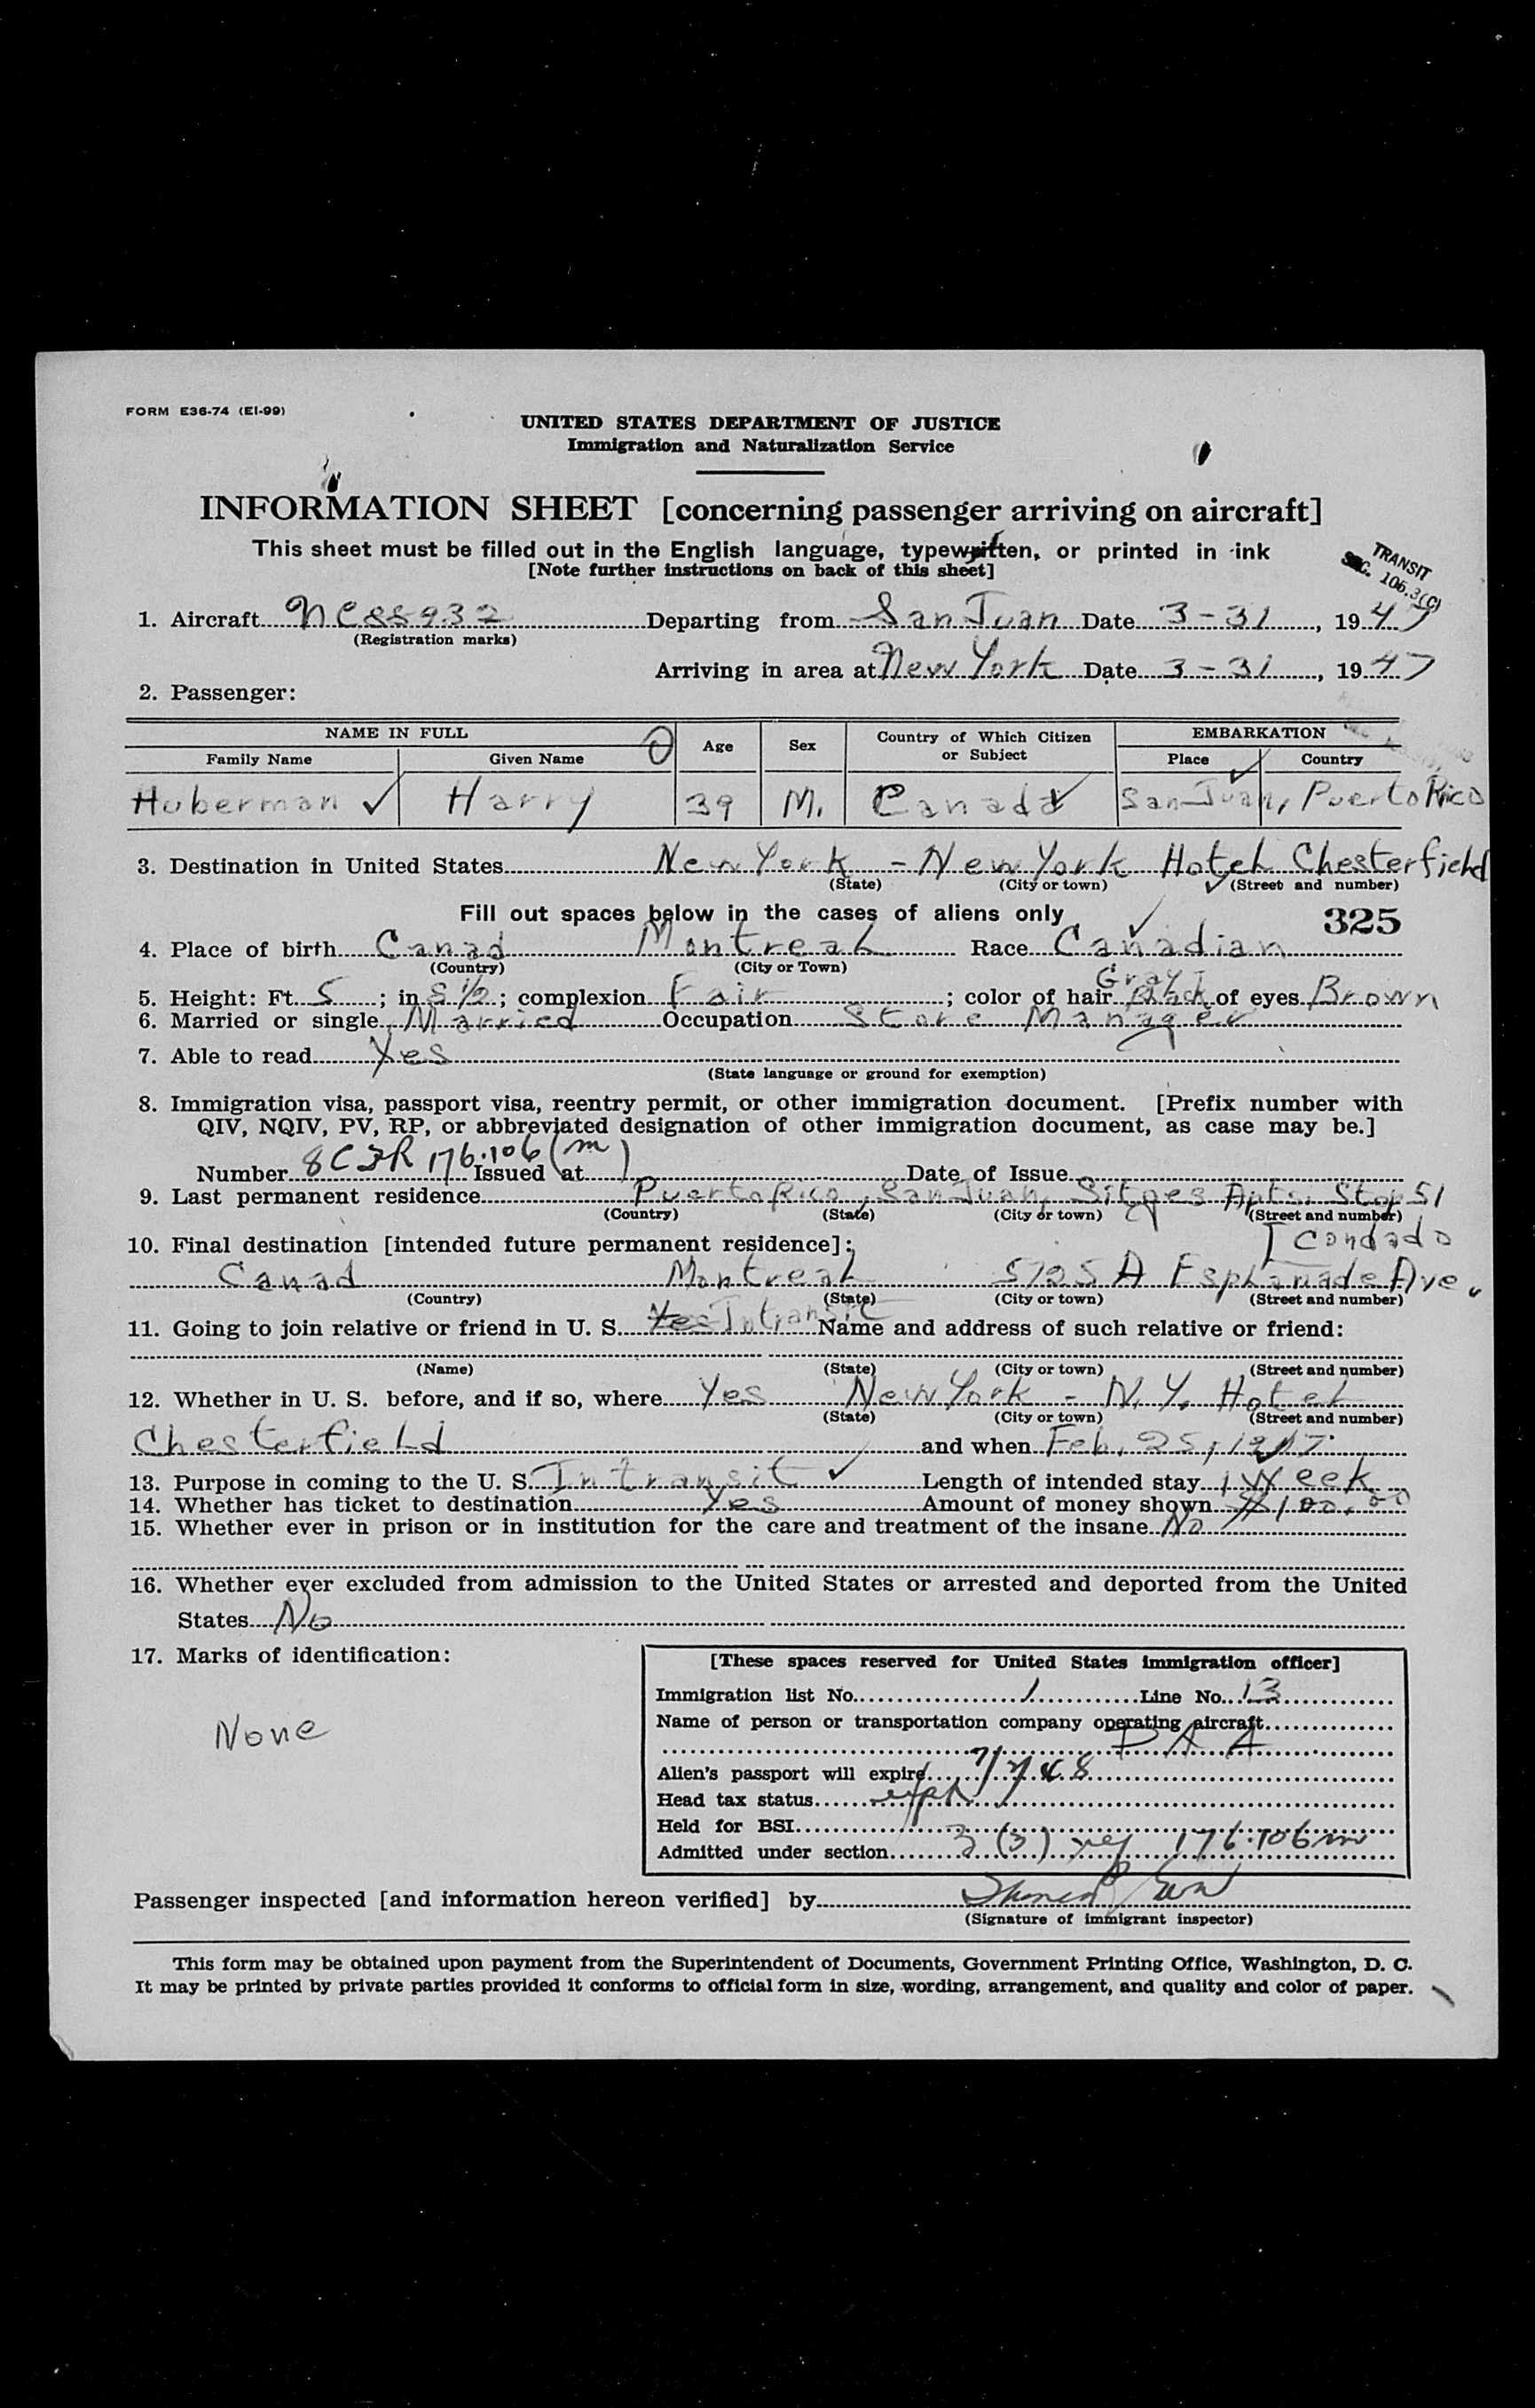 FORM E36-74 (EI-99)
UNITED STATES DEPARTMENT OF JUSTICE
Immigration and Naturalization Service
INFORMATION SHEET [concerning passenger arriving on aircraft]
This sheet must be filled out in the English language, typewritten, or printed in ink
[Note further instructions on back of this sheet]
TRANSIT
SEC. 106.3(C)
1. Aircraft NC88932 Departing from San Juan Date 3-31, 1947
(Registration marks)
Arriving in area at New York Date 3-31, 1947
2. Passenger:
NAME IN FULL Age Sex Country of Which Citizen or Subject EMBARKATION
Family Name Given Name Place Country
Huberman Harry 39 M. Canada San Juan, Puerto Rico
3. Destination in United States New York - New York Hotel Chesterfield
(State) (City or town) (Street and number)
Fill out spaces below in the cases of aliens only 325
4. Place of birth Canad Montreal Race Canadian
(Country) (City or Town)
5. Height: Ft. 5; in 8 1/2; complexion Fair; color of hair Gray of eyes Brown
6. Married or single Married Occupation Store Manager
7. Able to read Yes
(State language or ground for exemption)
8. Immigration visa, passport visa, reentry permit, or other immigration document. [Prefix number with
QIV, NQIV, PV, RP, or abbreviated designation of other immigration document, as case may be.]
Number 8 CFR 176.106 (m) Issued at Date of Issue
9. Last permanent residence Puerto Rico, San Juan, Sitges Apts. Stop 51
(Country) (State) (City or town) (Street and number)
[Condado
10. Final destination [intended future permanent residence]:
Canad Montreal 5725 A Esplanade Ave.
(Country) (State) (City or town) (Street and number)
11. Going to join relative or friend in U. S. Yes In transit Name and address of such relative or friend:
(Name) (State) (City or town) (Street and number)
12. Whether in U. S. before, and if so, where Yes New York - N.Y. Hotel
(State) (City or town) (Street and number)
Chesterfield and when Feb. 25, 1947
13. Purpose in coming to the U. S. In transit Length of intended stay 1 Week
14. Whether has ticket to destination Yes Amount of money shown $100.00
15. Whether ever in prison or in institution for the care and treatment of the insane No
16. Whether ever excluded from admission to the United States or arrested and deported from the United
States No
17. Marks of identification:
None
[These spaces reserved for United States immigration officer]
Immigration list No. 1 Line No. 13
Name of person or transportation company operating aircraft
P A A
Alien's passport will expire 7/7/48
Head tax status
Held for BSI
Admitted under section 3 (3) 176.106m
Passenger inspected [and information hereon verified] by
(Signature of immigrant inspector)
This form may be obtained upon payment from the Superintendent of Documents, Government Printing Office, Washington, D. C.
It may be printed by private parties provided it conforms to official form in size, wording, arrangement, and quality and color of paper.